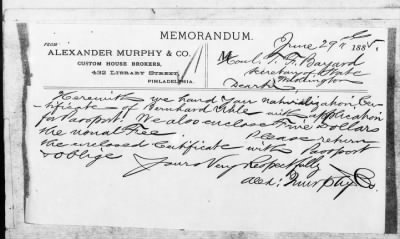 MEMORANDUM.
FROM
ALEXANDER MURPHY & CO.
CUSTOM HOUSE BROKERS,
432 LIBRARY STREET,
PHILADELPHIA.
June 29th 1885
Honl. T. F. Bayard
Secretary of State
Washington
Dear Sir
Herewith we hand you naturalization Cer-
tificate of Bernhard with application
for Passport. We also enclose Five Dollars
the usual Fee. Please return
the enclosed Certificate with Passport
& oblige Yours Very Respectfully
Alex. Murphy & Co.